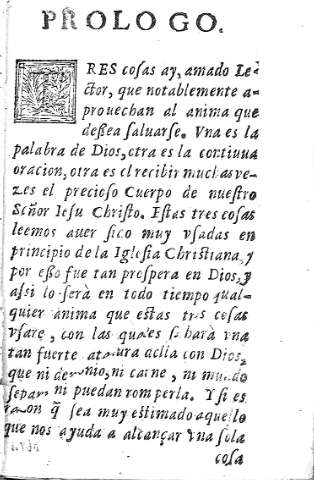 PROLOGO.
TRES cosas ay, amado Le-
ctor, que notablemente a-
prouechan al anima que
dessea saluarse. Vna es la
palabra de Dios, otra es la continua
oracion, otra es el recibir muchas ve-
zes el precioso Cuerpo de nuestro
Señor Iesu Christo. Estas tres cosas
leemos auer sido muy vsadas en
principio de la Iglesia Christiana, y
por esso fue tan prospera en Dios, y
assi lo serà en todo tiempo qual-
quier anima que estas tres cosas
vsare, con las quales se harà vna
tan fuerte atadura della con Dios,
que ni demonio, ni carne, ni mundo
ni puedan romperla. Y si es
razon q̃ sea muy estimado aquello
que nos ayuda a alcançar vna sola
cosa